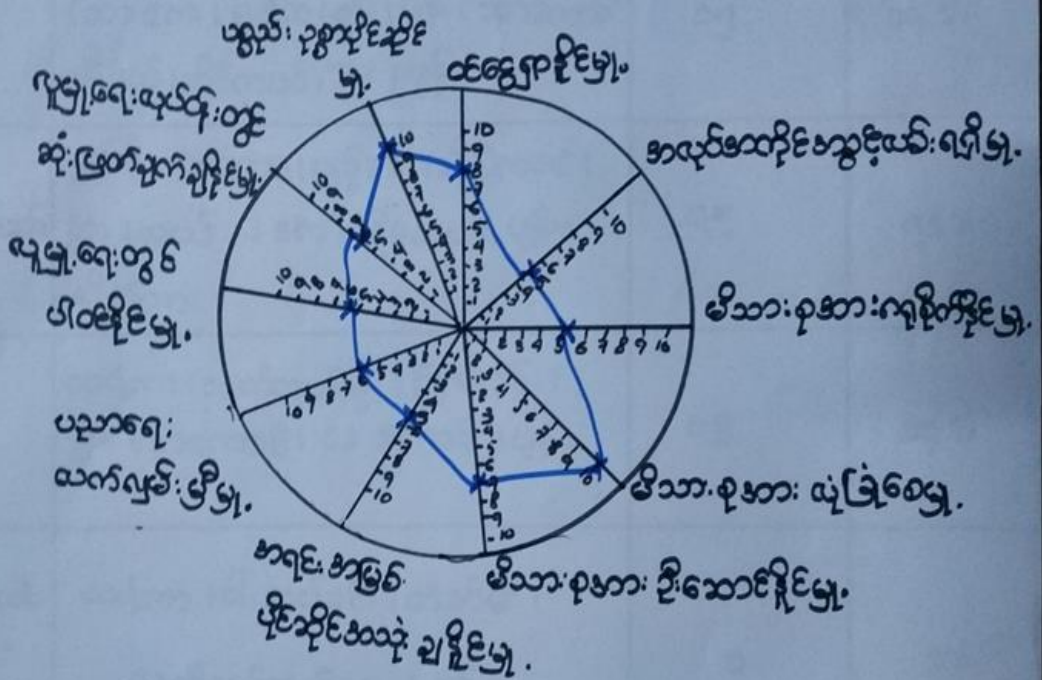 ပစ္စည်းဥစ္စာပိုင်ဆိုင်
မှု.
ဝင်ငွေရှာနိုင်မှု.
အလုပ်အကိုင်အခွင့်လမ်းရရှိမှု.
မိသားစုအားဂရုစိုက်နိုင်မှု.
မိသားစုအား လုံခြုံစေမှု.
မိသားစုအား ဦးဆောင်နိုင်မှု.
အရင်းအမြစ်
ပိုင်ဆိုင်အသုံးချနိုင်မှု.
ပညာရေး
လက်လှမ်းမှီမှု.
လူမှုရေးတွင်
ပါဝင်နိုင်မှု.
လူမှုရေးလုပ်ငန်းတွင်
ဆုံးဖြတ်ချက်ချနိုင်မှု.
10
9
8
7
6
5
4
3
2
1